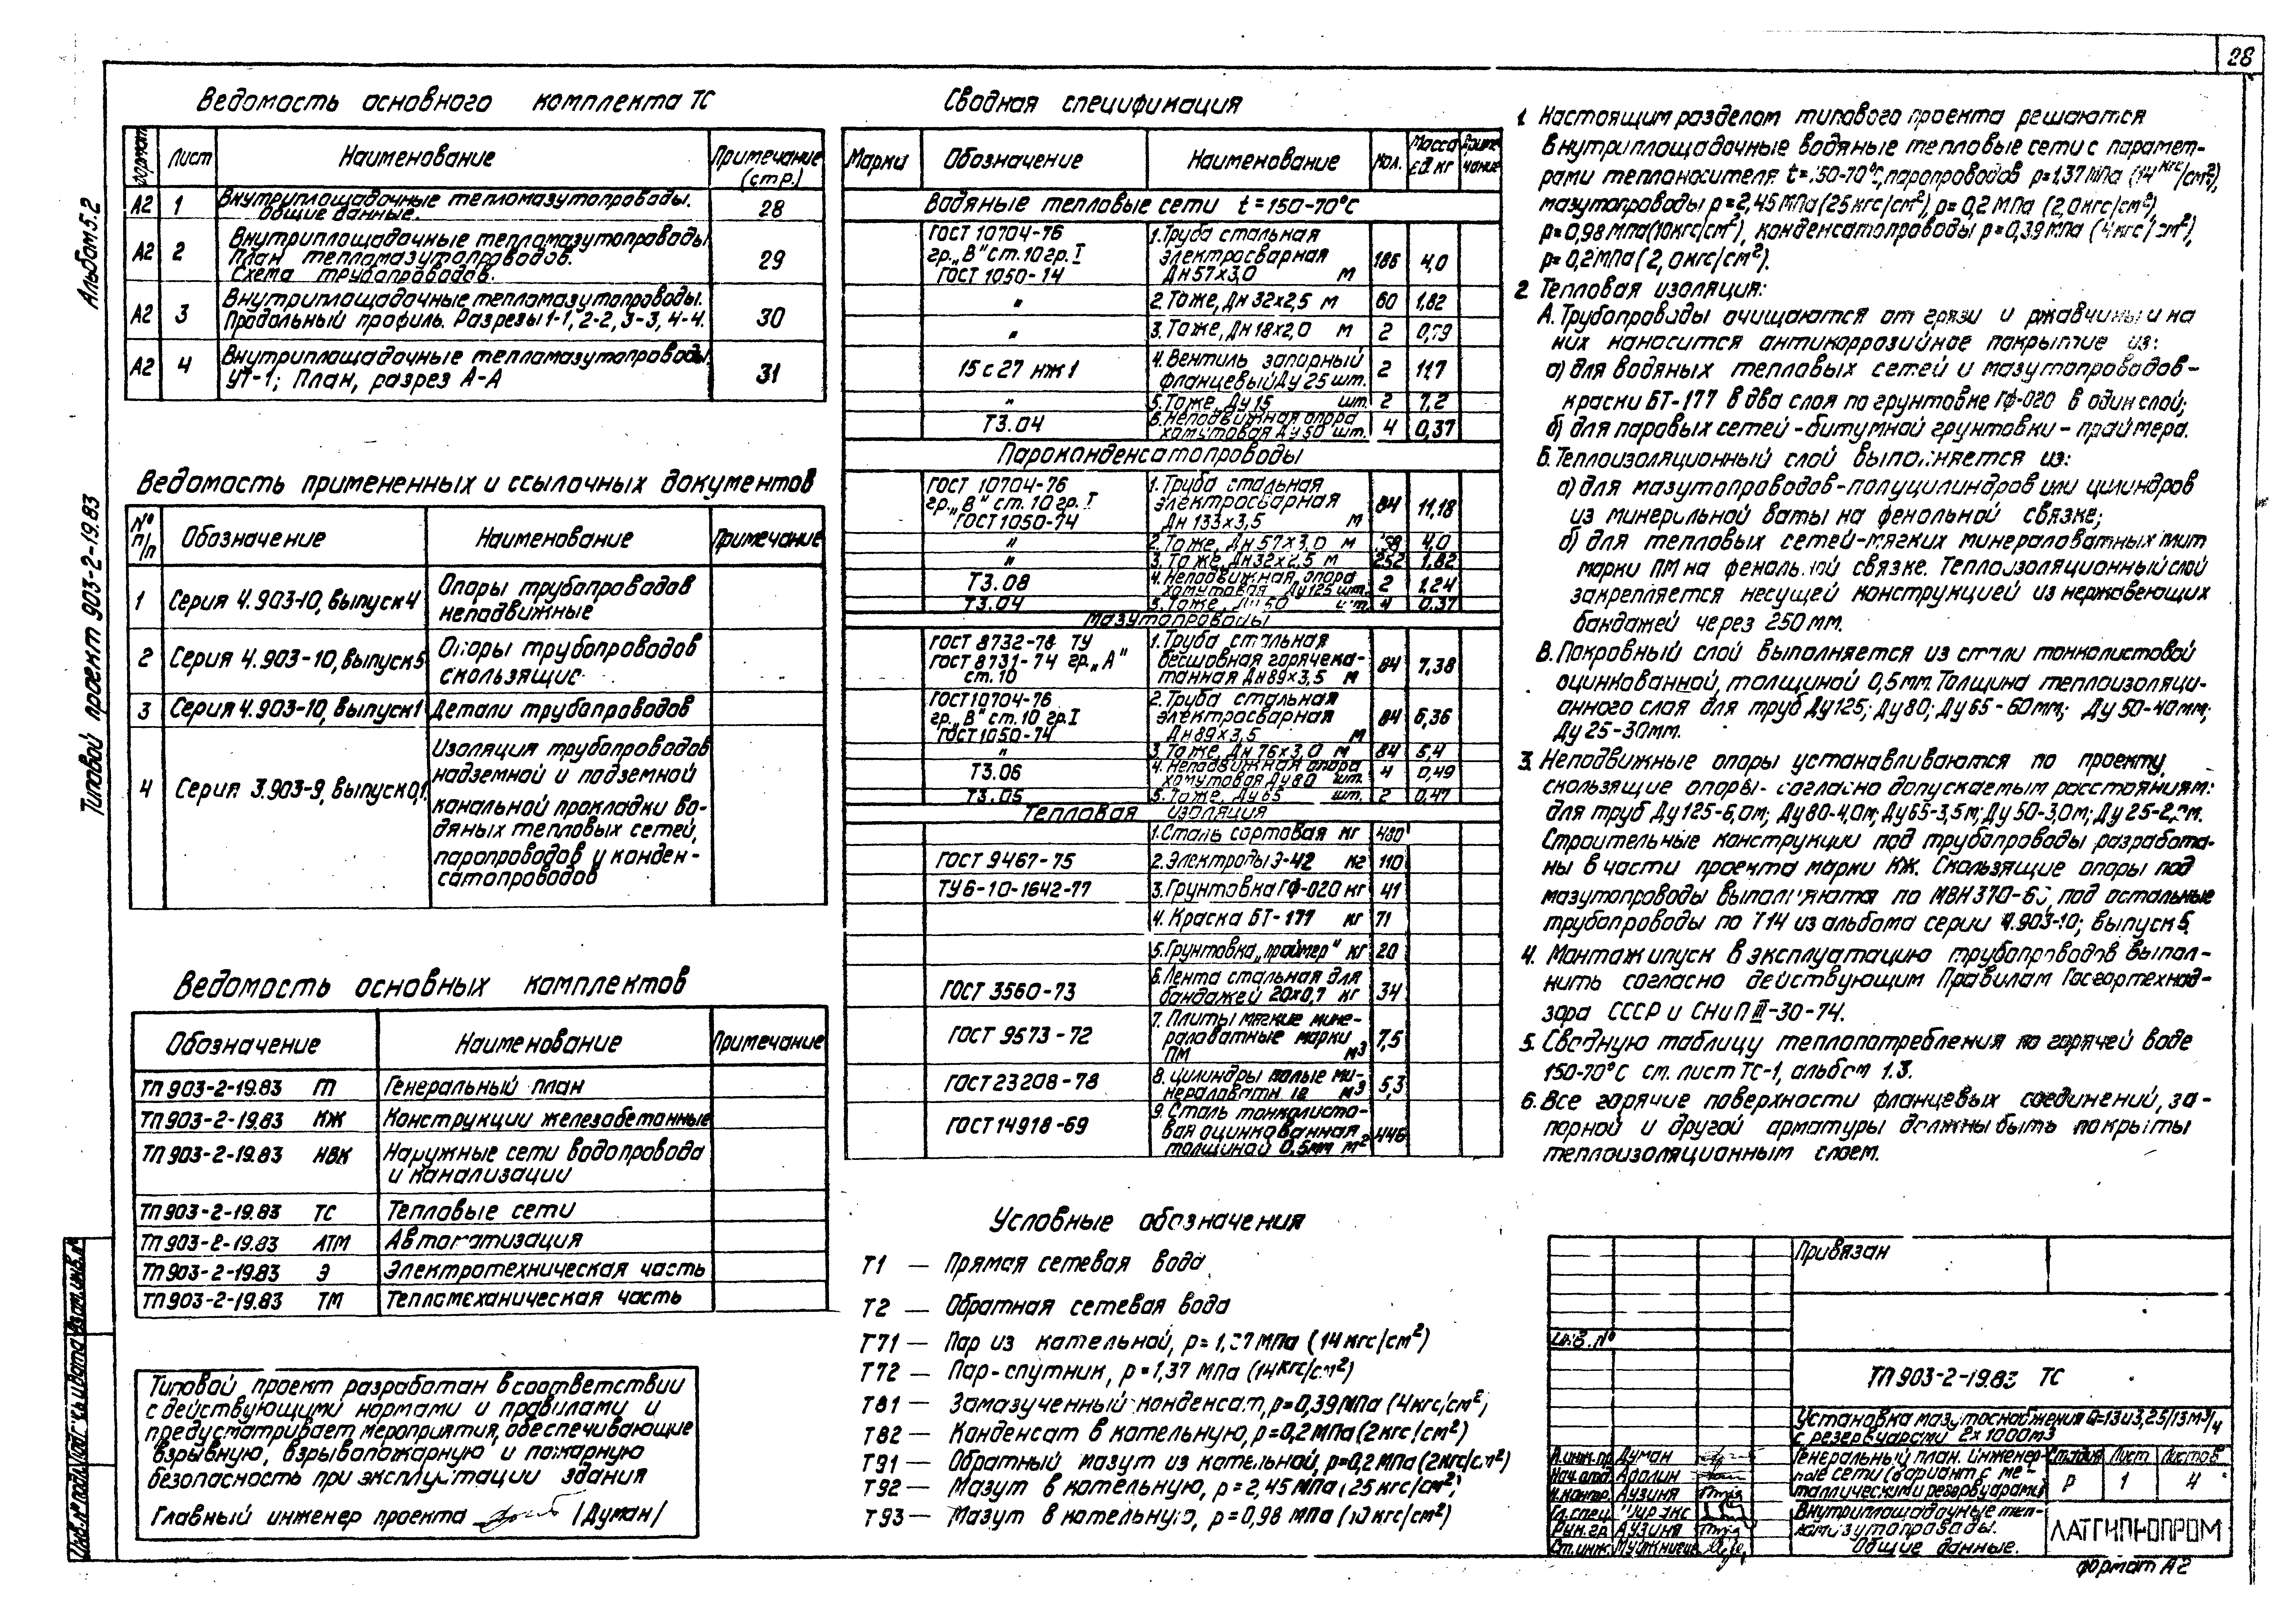 28
Альбом 5.2
Типовой проект 903-2-19.83
Ведомость основного комплекта ТС
Формат Лист Наименование Примечание (стр.)
А2 1 Внутриплощадочные тепломазутопроводы.
Общие данные. 28
А2 2 Внутриплощадочные тепломазутопроводы
План тепломазутопроводов.
Схема трубопроводов. 29
А2 3 Внутриплощадочные тепломазутопроводы.
Продольный профиль. Разрезы 1-1, 2-2, 3-3, 4-4. 30
А2 4 Внутриплощадочные тепломазутопроводы.
УТ-1; План, разрез А-А 31
Ведомость примененных и ссылочных документов
№ п/п Обозначение Наименование Примечание
1 Серия 4.903-10, выпуск 4 Опоры трубопроводов
неподвижные
2 Серия 4.903-10, выпуск 5 Опоры трубопроводов
скользящие
3 Серия 4.903-10, выпуск 1 Детали трубопроводов
4 Серия 3.903-9, выпуск 0,1. Изоляция трубопроводов
надземной и подземной
канальной прокладки во-
дяных тепловых сетей,
паропроводов и конден-
сатопроводов
Ведомость основных комплектов
Обозначение Наименование Примечание
ТП 903-2-19.83 ГП Генеральный план
ТП 903-2-19.83 КЖ Конструкции железобетонные
ТП 903-2-19.83 НВК Наружные сети водопровода
и канализации
ТП 903-2-19.83 ТС Тепловые сети
ТП 903-2-19.83 АТМ Автоматизация
ТП 903-2-19.83 Э Электротехническая часть
ТП 903-2-19.83 ТМ Тепломеханическая часть
Типовой проект разработан в соответствии
с действующими нормами и правилами и
предусматривает мероприятия, обеспечивающие
взрывную, взрывопожарную и пожарную
безопасность при эксплуатации здания
Главный инженер проекта /Думан/
Сводная спецификация
Марки Обозначение Наименование Кол. Масса ед. кг Примечание
Водяные тепловые сети t=150-70°С
ГОСТ 10704-76 1. Труба стальная
гр. „В" ст. 10 гр. I электросварная 186 4,0
ГОСТ 1050-14 Дн 57х3,0 м
" 2. Тоже, Дн 32х2,5 м 60 1,82
" 3. Тоже, Дн 18х2,0 м 2 0,79
15 с 27 нж 1 4. Вентиль запорный
фланцевый Ду 25 шт. 2 11,7
" 5. Тоже, Ду 15 шт. 2 7,2
Т3.04 6. Неподвижная опора
хомутовая Ду 50 шт. 4 0,37
Парокондесатопроводы
ГОСТ 10704-76 1. Труба стальная
гр. „В" ст. 10 гр. I электросварная 84 11,18
ГОСТ 1050-74 Дн 133х3,5 м
" 2. Тоже, Дн 57х3,0 м 4,0
" 3. Тоже, Дн 32х2,5 м 252 1,82
Т3.08 4. Неподвижная опора
хомутовая Ду 125 шт. 2 1,24
Т3.04 5. Тоже, Ду 50 шт. 4 0,37
Мазутопроводы
ГОСТ 8732-78 ТУ 1. Труба стальная
ГОСТ 8731-74 гр. „А" бесшовная горячека- 84 7,38
ст. 10 танная Дн 89х3,5 м
ГОСТ 10704-76 2. Труба стальная
гр. „В" ст. 10 гр. I электросварная 84 6,36
ГОСТ 1050-74 Дн 89х3,5 м
" 3. Тоже, Дн 76х3,0 м 84 5,4
Т3.06 4. Неподвижная опора
хомутовая Ду 80 шт. 4 0,49
Т3.05 5. Тоже, Ду 65 шт. 2 0,47
Тепловая изоляция
1. Сталь сортовая кг 480
ГОСТ 9467-75 2. Электроды Э-42 кг 110
ТУ 6-10-1642-77 3. Грунтовка ГФ-020 кг 41
4. Краска БТ-177 кг 71
5. Грунтовка „праймер" кг 20
ГОСТ 3560-73 6. Лента стальная для
бандажей 20х0,7 кг 34
ГОСТ 9573-72 7. Плиты мягкие мине-
раловатные марки
ПМ м³ 7,5
ГОСТ 23208-78 8. Цилиндры полые ми-
нераловатн. м³ 5,3
ГОСТ 14918-69 9. Сталь тонколисто-
вая оцинкованная
толщиной 0,5мм м² 446
Условные обозначения
Т1 — Прямая сетевая вода
Т2 — Обратная сетевая вода
Т71 — Пар из котельной, р=1,37 МПа (14 кгс/см²)
Т72 — Пар-спутник, р=1,37 МПа (14кгс/см²)
Т81 — Замазученный конденсат, р=0,39МПа (4кгс/см²)
Т82 — Конденсат в котельную, р=0,2МПа (2кгс/см²)
Т91 — Обратный мазут из котельной, р=0,2МПа (2кгс/см²)
Т92 — Мазут в котельную, р=2,45 МПа (25кгс/см²)
Т93 — Мазут в котельную, р=0,98 МПа (10кгс/см²)
1. Настоящим разделом типового проекта решаются
внутриплощадочные водяные тепловые сети с парамет-
рами теплоносителя t=150-70°С, паропроводов р=1,37МПа (14 кгс/см²),
мазутопроводы р=2,45МПа (25кгс/см²), р=0,2МПа (2,0кгс/см²),
р=0,98МПа(10кгс/см²), конденсатопроводы р=0,39МПа (4кгс/см²),
р=0,2МПа (2,0кгс/см²).
2. Тепловая изоляция:
А. Трубопроводы очищаются от грязи и ржавчины и на
них наносится антикоррозийное покрытие из:
а) для водяных тепловых сетей и мазутопроводов-
краски БТ-177 в два слоя по грунтовке ГФ-020 в один слой;
б) для паровых сетей - битумной грунтовки - праймера.
Б. Теплоизоляционный слой выполняется из:
а) для мазутопроводов-полуцилиндров или цилиндров
из минеральной ваты на фенольной связке;
б) для тепловых сетей-мягких минераловатных мит
марки ПМ на фенольной связке. Теплоизоляционный слой
закрепляется несущей конструкцией из нержавеющих
бандажей через 250мм.
В. Покровный слой выполняется из стали тонколистовой
оцинкованной, толщиной 0,5мм. Толщина теплоизоляци-
онного слоя для труб Ду125; Ду80; Ду65-60мм; Ду50-40мм;
Ду 25-30мм.
3. Неподвижные опоры устанавливаются по проекту,
скользящие опоры- согласно допускаемым расстояниям:
для труб Ду125-6,0м; Ду80-4,0м; Ду65-3,5м; Ду50-3,0м; Ду25-2,0м.
Строительные конструкции под трубопроводы разработа-
ны в части проекта марки КЖ. Скользящие опоры под
мазутопроводы выполняются по МВН 370-63, под остальные
трубопроводы по Т14 из альбома серии 4.903-10; выпуск 5.
4. Монтаж и пуск в эксплуатацию трубопроводов выпол-
нить согласно действующим Правилам Госгортехнад-
зора СССР и СНиП III-30-74.
5. Сводную таблицу теплопотребления по горячей воде
150-70°С см. лист ТС-1, альбом 1.3.
6. Все горячие поверхности фланцевых соединений, за-
порной и другой арматуры должны быть покрыты
теплоизоляционным слоем.
Привязан
Инв. №
ТП 903-2-19.83 ТС
Установка мазутоснабжения Q=13и3,25/13м³/ч
с резервуарами 2х1000м³
Гл.инж.пр. Думан
Нач.отд.
Н.контр. Аузиня
Гл.спец.
Рук.гр. Аузиня
Ст.инж.
Генеральный план. Инженер-
ные сети (вариант с ме-
таллическими резервуарами)
Стадия Лист Листов
Р 1 4
Внутриплощадочные теп-
ломазутопроводы.
Общие данные.
ЛАТГИПРОПРОМ
Формат А2
Инв.№ подл. Подпись и дата Взам.инв.№